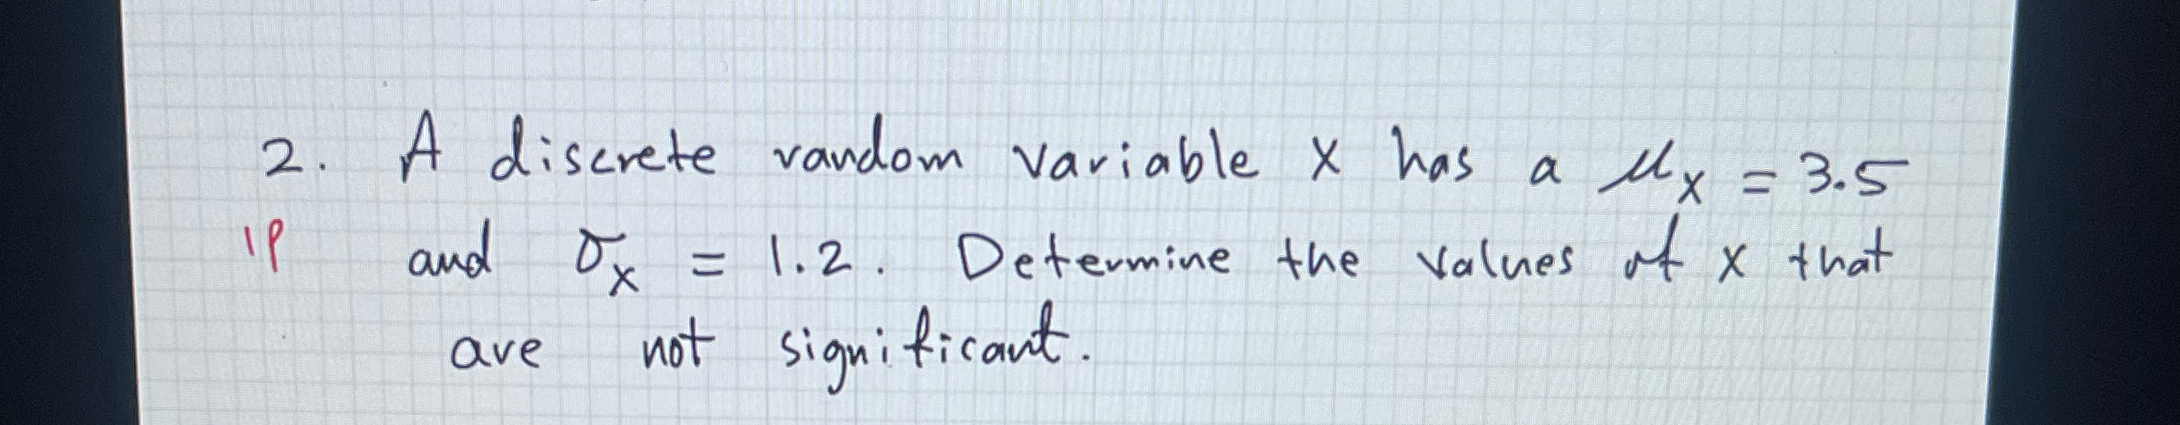 2. A discrete random variable x has a μx = 3.5
1P and σx = 1.2. Determine the values of x that
are not significant.